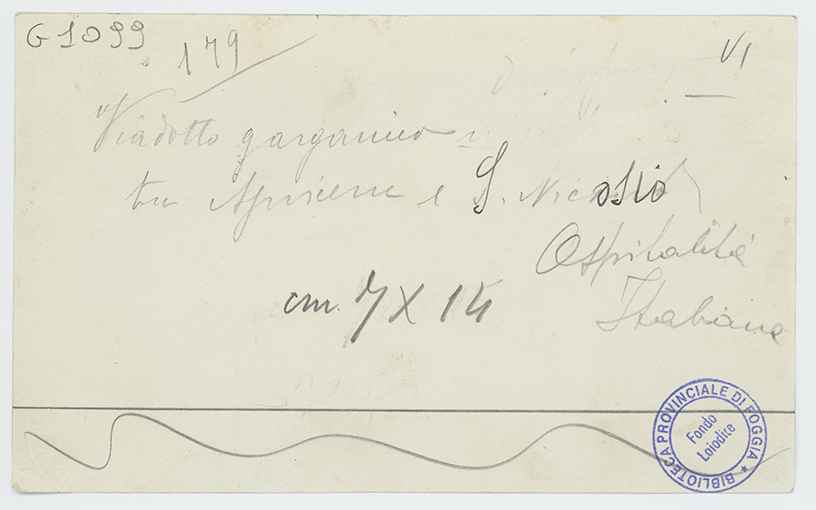 G 1099
179
VI
Viadotto garganico
tra Apricena e S. Nic
Ospitalità
Italiana
cm 7 X 14
BIBLIOTECA PROVINCIALE DI FOGGIA
Fondo
Loiodice